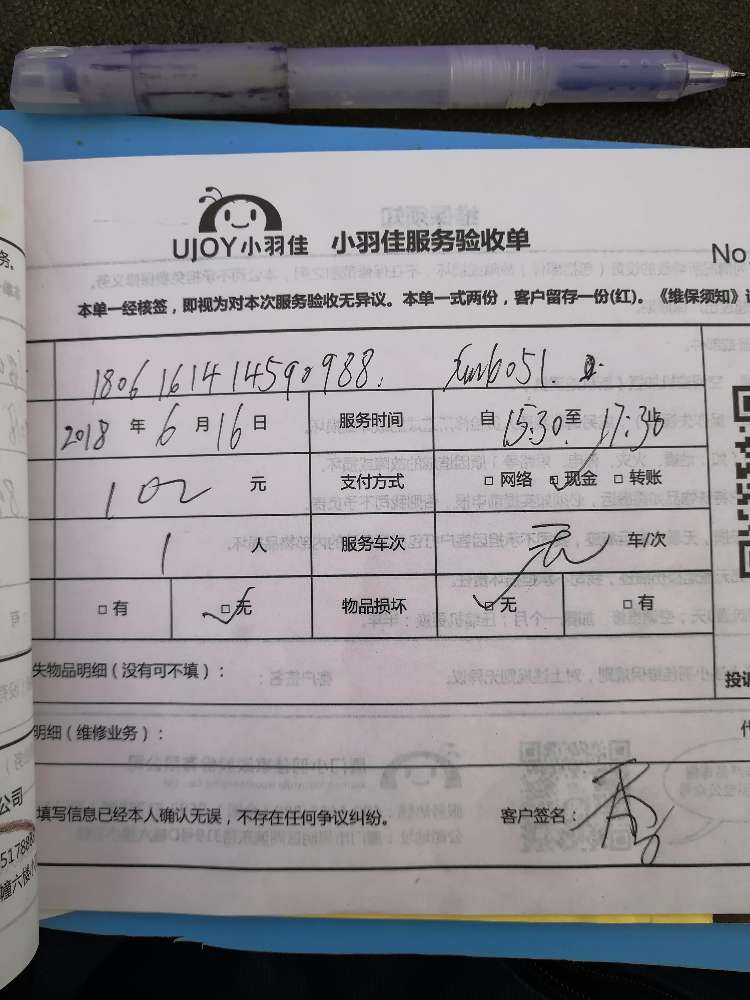 UJOY小羽佳 小羽佳服务验收单
No.
本单一经核签，即视为对本次服务验收无异议。本单一式两份，客户留存一份(红)。《维保须知》
1806161414590988. xmb051.
2018 年 6 月 16 日 服务时间 自 15:30 至 17:36
102 元 支付方式 □ 网络 □ 现金 □ 转账
1 人 服务车次 无 车/次
□ 有 □ 无 物品损坏 □ 无 □ 有
失物品明细（没有可不填）：
投诉
明细（维修业务）：
填写信息已经本人确认无误，不存在任何争议纠纷。 客户签名：
务。
公司
517888
幢六楼